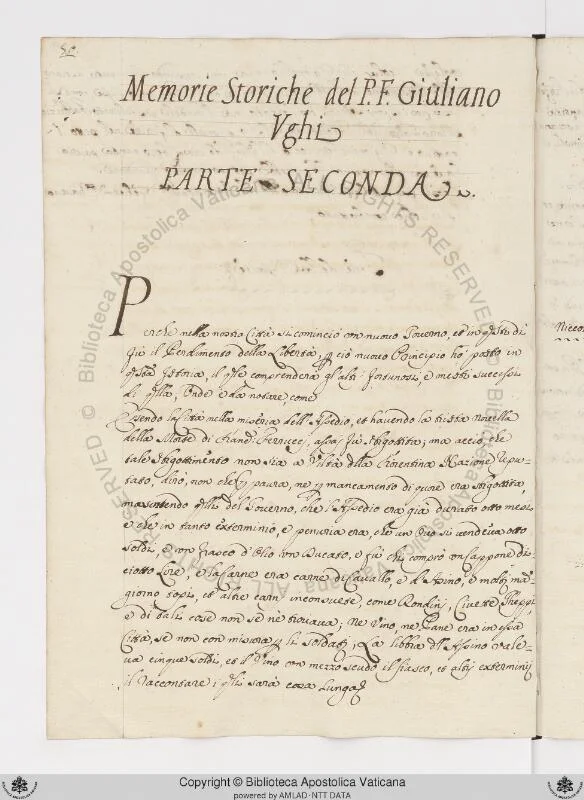 80.
Memorie Storiche del P. F. Giuliano
Vghi
PARTE SECONDA.
Perche nella nostra Città si cominciò un nuovo Governo, et in questo dì
fù il Perdimento della Libertà, per ciò nuovo Principio hò posto in
questa Istoria, il quale comprenderà gl'altri fortunosi e mesti successi
di quella, Onde è da notare, come
Essendo la Città nella miseria dell'Assedio, et havendo la trista novella
della Morte di Franc.º Ferrucci, assai più sbigottita; ma acciò, che
tale sbigottimento non sia a viltà della Fiorentina Nazione repu-
tato, dirò, non che per paura, ne per mancamento di cuore era sbigottita,
ma sentendo quelli del Governo, che l'Assedio era già durato otto mesi
e che in tanto exterminio, e penuria era, che un Ovo si vendeva otto
soldi, e un fiasco d'Olio un Ducato, e fù chi comprò un Cappone di-
ciotto Lire, e la Carne era carne di Cavallo, e d'Asino, e molti man-
giorno Topi, et altre carni inconsuete, come Rondini, Civette
e di tali cose non se ne trovava; Ne Vino, ne Pane era in essa
Città, se non con misura per li soldati; La libbra d'Asino vale-
va cinque soldi, et il Vino con mezzo scudo il fiasco, et altri exterminij
il raccontare i quali sarà cosa lunga
Nicco
Copyright © Biblioteca Apostolica Vaticana
powered by AMLAD · NTT DATA